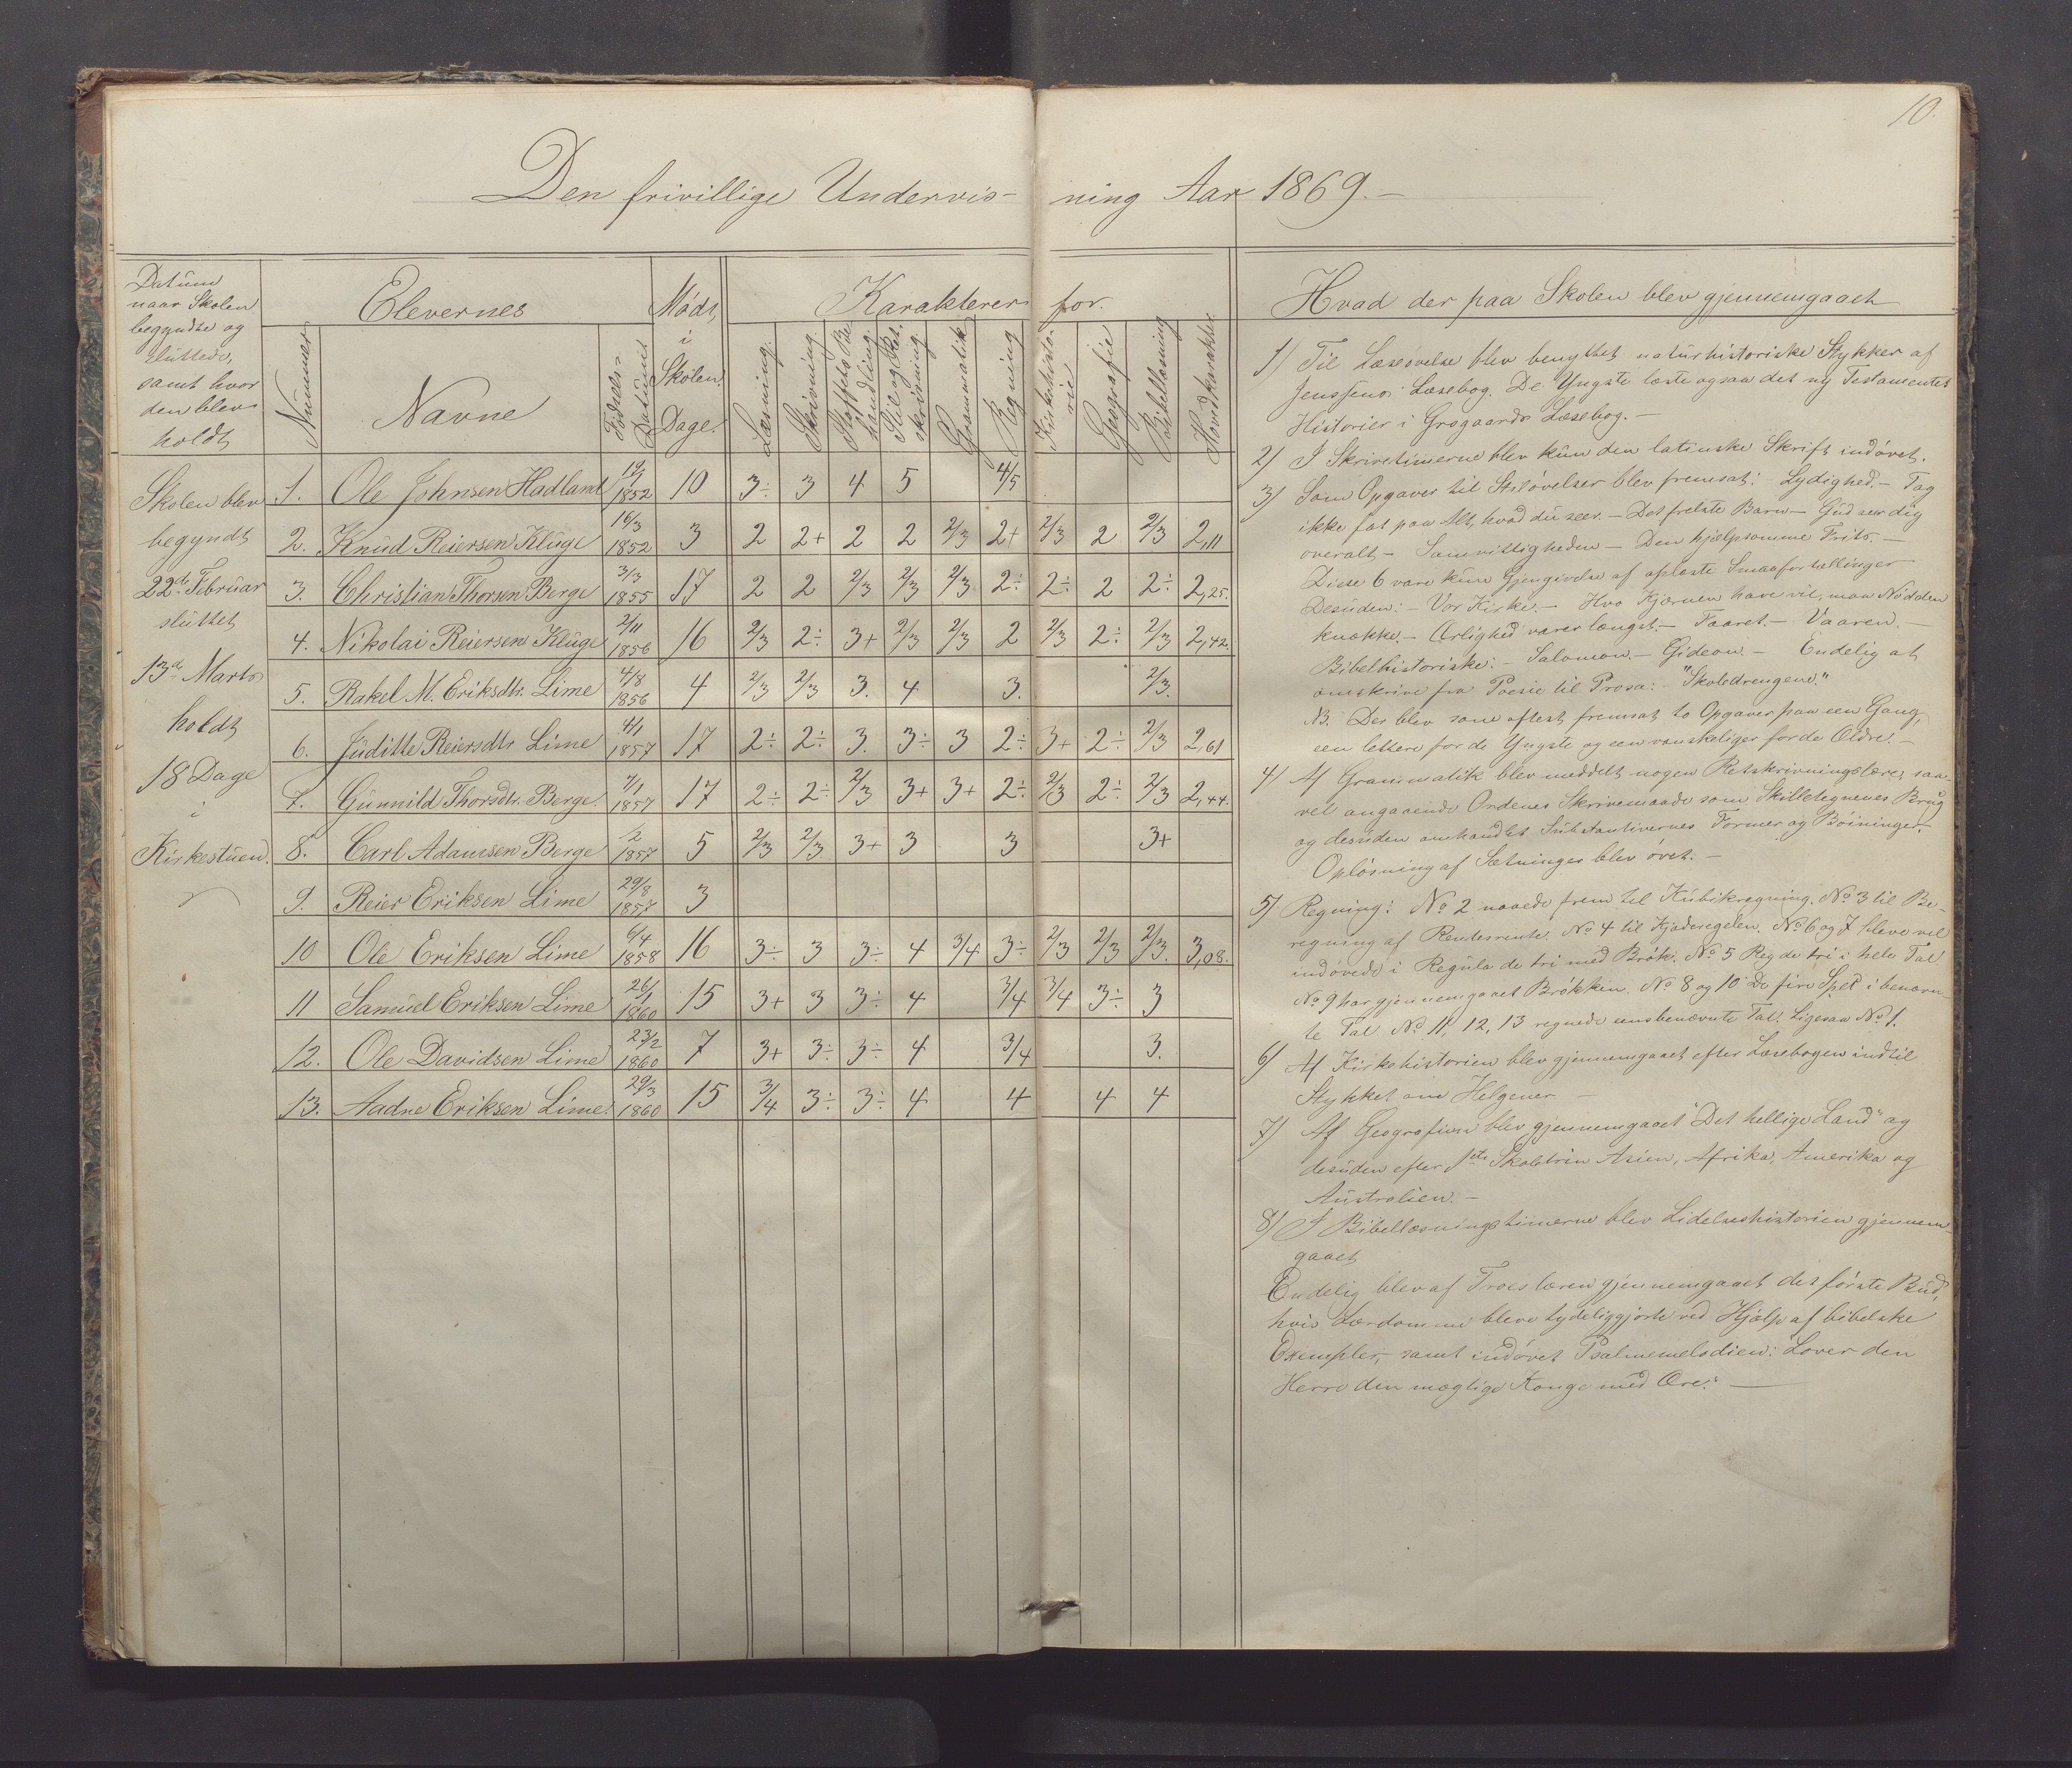 10.
Den frivillige Undervis- ning Aar 1869.-
Datum naar Skolen begyndte og sluttede, samt hvor den blev holdt
Elevernes
Nummer
Navne
Fødsels-Datum
Mødt i Skolen. Dage.
Karakterer for.
Læsning.
Skrivning.
Stoffets Behandling.
Stil og Retskrivning.
Grammatik
Regning
Kirkehistorie
Geografie
Bibellæsning
Hovedkarakter.
Hvad der paa Skolen blev gjennemgaaet
Skolen blev
begyndt
22de Februar
sluttet
13de Marts
holdt
18 Dage
i
Kirkestuen.
1. Ole Johnsen Hadland 19/1 1852 10 3÷ 3 4 5 4/5
2. Knud Reiersen Kluge 16/3 1852 3 2 2+ 2 2 2/3 2+ 2/3 2 2/3 2,11
3. Christian Thorsen Berge 3/3 1855 17 2 2 2/3 2/3 2/3 2÷ 2÷ 2 2÷ 2,25.
4. Nikolai Reiersen Kluge 2/11 1856 16 2/3 2÷ 3+ 2/3 2/3 2 2/3 2÷ 2/3 2,42.
5. Rakel M. Eriksdtr. Lime 4/8 1856 4 2/3 2/3 3. 4 3. 2/3.
6. Juditte Reiersdtr Lime 4/1 1857 17 2÷ 2÷ 3. 3÷ 3 2÷ 3+ 2÷ 2/3 2,61
7. Gunnild Thorsdtr. Berge. 7/1 1857 17 2÷ 2÷ 2/3 3+ 3+ 2÷ 2/3 2÷ 2/3 2,44.
8. Carl Adamsen Berge /2 1857 5 2/3 2/3 3+ 3 3 3+
9. Reier Eriksen Lime 29/8 1857 3
10 Ole Eriksen Lime 6/4 1858 16 3÷ 3 3÷ 4 3/4 3÷ 2/3 2/3 2/3. 3,08.
11 Samuel Eriksen Lime 26/1 1860 15 3+ 3 3÷ 4 3/4 3/4 3÷ 3
12. Ole Davidsen Lime 23/2 1860 7 3+ 3÷ 3÷ 4 3/4 3.
13. Aadne Eriksen Lime. 29/3 1860 15 3/4 3÷ 3÷ 4 4 4 4
1) Til Læseøvelse blev benyttet naturhistoriske Stykker af
Jenssens Læsebog. De Yngste læste ogsaa det ny Testamentes
Historier i Grogaards Læsebog.-
2) I Skrivetimerne blev kun den latinske Skrift indøvet.
3) Som Opgaver til Stiløvelser blev fremsat: Lydighed.- Tag
ikke fat paa Alt, hvad du seer.- Det frelste Barn- Gud seer dig
overalt- Samvittigheden- Den hjælpsomme Frits.-
Disse 6 vare kun Gjengivelse af oplæste Smaafortællinger
Desuden:- Vor Kirke.- Hvo Kjærnen have vil, maa Nødden
knække.- Ærlighed varer længst.- Faaret.- Vaaren.-
Bibelhistoriske:- Salomon.- Gideon.- Endelig at
omskrive fra Poesie til Prosa:- "Skoledrengene."
NB. Der blev som oftest fremsat to Opgaver paa een Gang,
een lettere for de Yngste og een vanskeliger for de Ældre.-
4) Af Grammatik blev meddelt nogen Retskrivningslære, saa-
vel angaaende Ordenes Skrivemaade som Skilletegnenes Brug
og desuden omhandlet Substantivernes Former og Bøininger.
Opløsning af Sætninger blev øvet.-
5) Regning: No 2 naaede frem til Kubikregning. No 3 til Be-
regning af Rentesrente. No 4 til Kjæderegelen. No 6 og 7 bleve vel
indøvede i Regula de tri med Brøk. No 5 Reg de tri i hele Tal
No 9 har gjennemgaaet Brøkken. No 8 og 10 De fire Spec i benævn-
te Tal No 11, 12, 13 regnede eensbenævnte Tal. Ligesaa No 1.
6) Af Kirkehistorien blev gjennemgaaet efter Læsebogen indtil
Stykket om Helgener -
7) Af Geografien blev gjennemgaaet "Det hellige Land" og
desuden efter 1ste Skoletrin Asien, Afrika, Amerika og
Australien.-
8) I Bibellæsningstimerne blev Lidelseshistorien gjennem-
gaaet
Endelig blev af Troeslæren gjennemgaaet det første Bud,
hvis Lærdomme bleve tydeliggjorte ved Hjælp af bibelske
Exempler, samt indøvet Psalmemelodien: Lover den
Herre den mægtige Konge med Ære.-